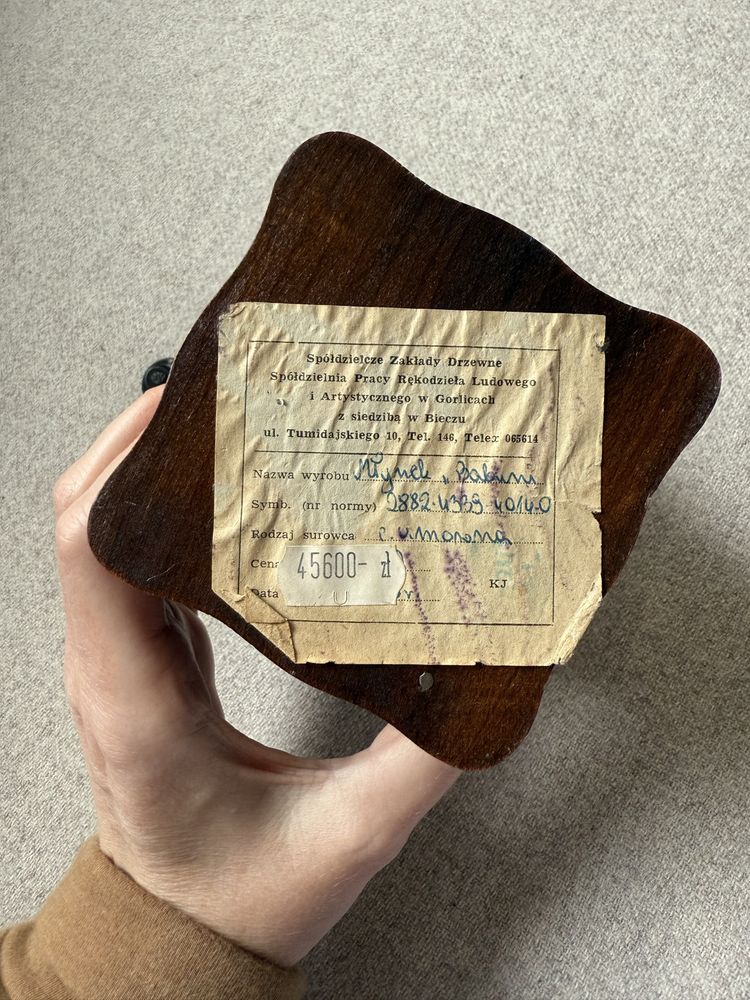 Spółdzielcze Zakłady Drzewne
Spółdzielnia Pracy Rękodzieła Ludowego
i Artystycznego w Gorlicach
z siedzibą w Bieczu
ul. Tumidajskiego 10, Tel. 146, Telex 065614
Nazwa wyrobu Młynek "Babuni
Symb. (nr normy)
Rodzaj surowca
Cena
45600- zł
KJ
Data